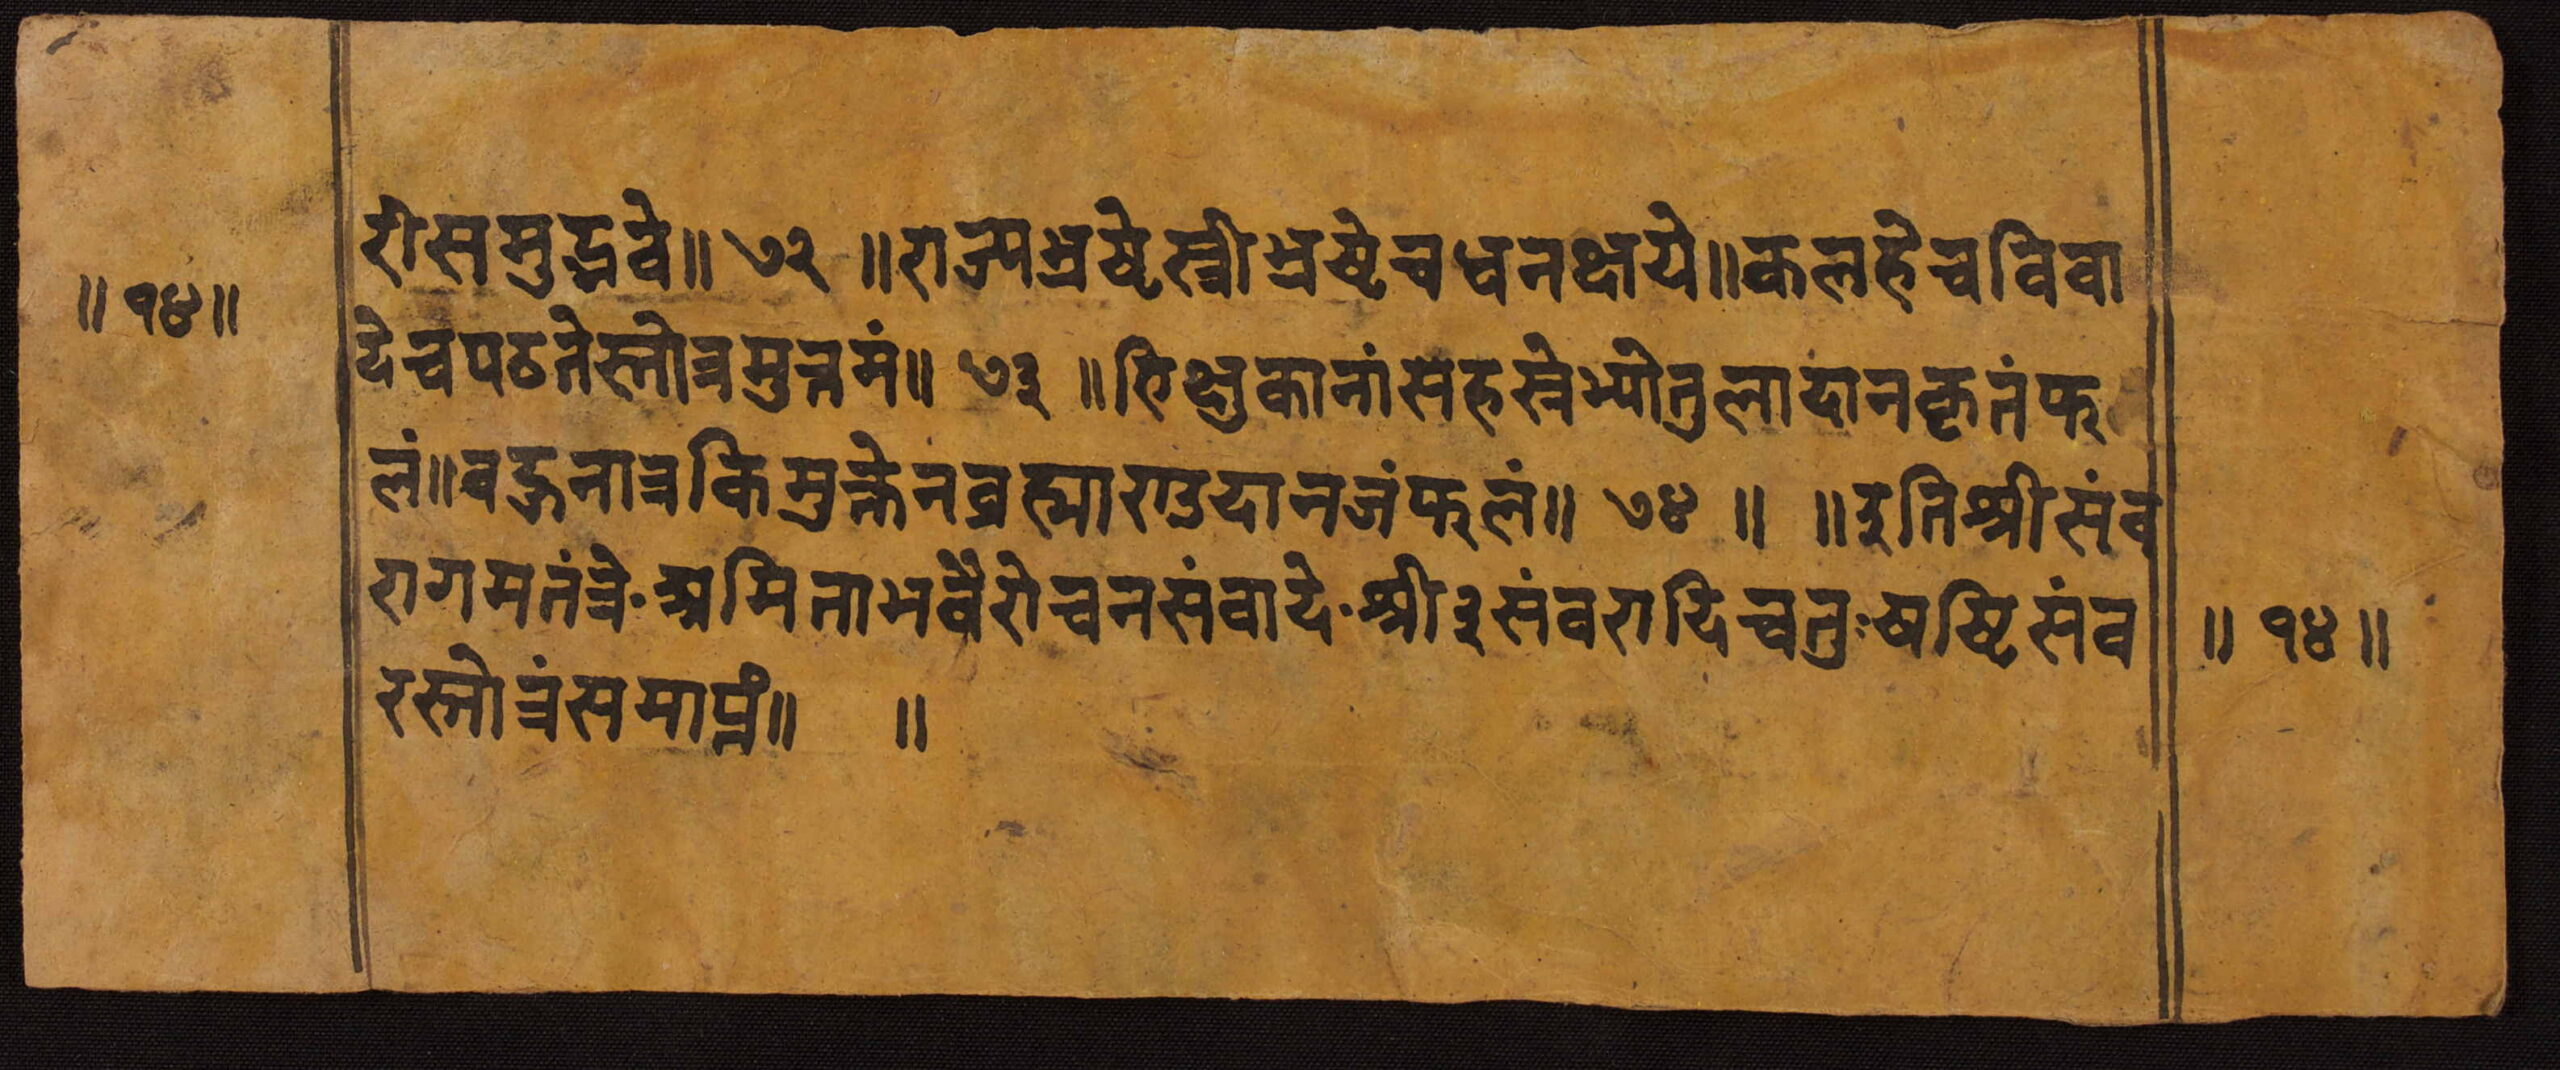 रीसमुद्भवे॥ ७२ ॥राज्यभ्रष्टेस्त्रीभ्रष्टेचधनक्षये॥कलहेचविवा
॥ १४॥
देचपठतेस्तोत्रमुत्तमं॥ ७३ ॥भिक्षुकानांसहस्रेभ्योतुलादानकृतंफ
लं॥बहुनात्रकिमुक्तेनब्रह्माण्डदानजंफलं॥ ७४ ॥ ॥इतिश्रीसंव
रागमतंत्रे·अमिताभवैरोचनसंवादे·श्री३संवरादिचतुःषष्टिसंव
॥ १४॥
रस्तोत्रंसमाप्तं॥ ॥